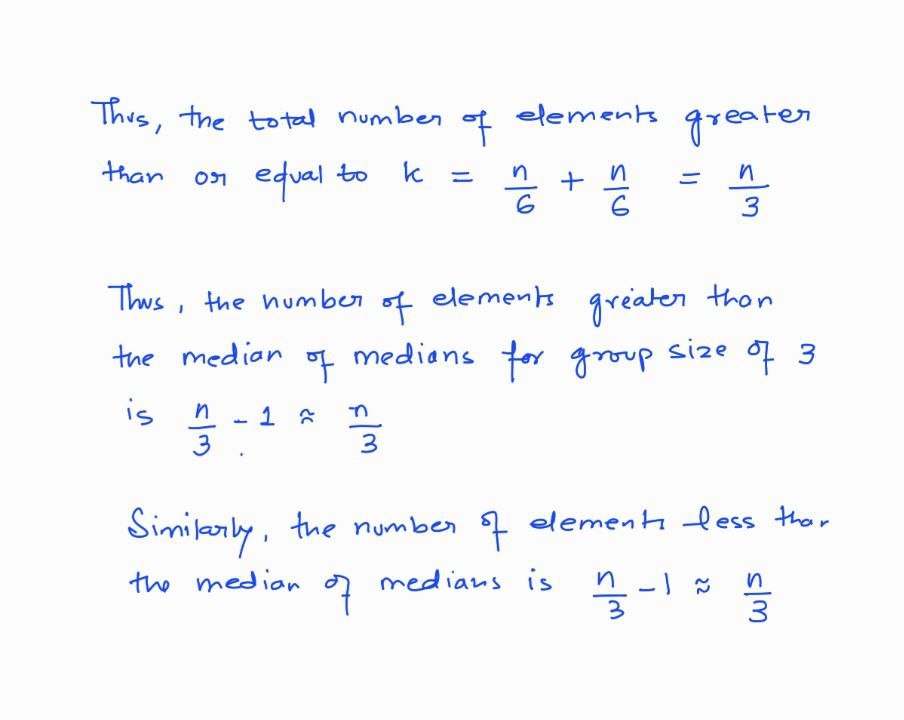 Thus, the total number of elements greater
than or equal to k = n/6 + n/6 = n/3
Thus, the number of elements greater than
the median of medians for group size of 3
is n/3 - 1 ≈ n/3
Similarly, the number of elements less than
the median of medians is n/3 - 1 ≈ n/3